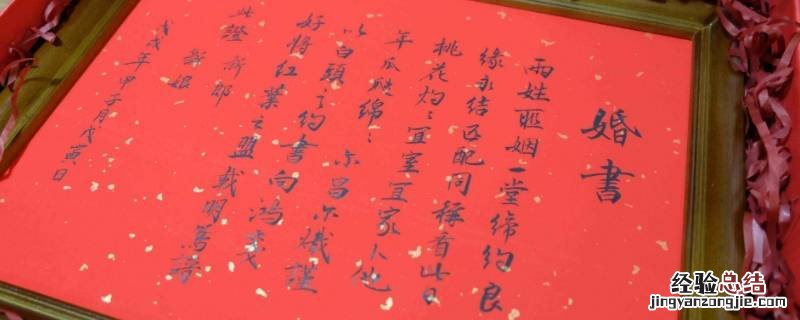 婚書
兩姓聯姻一堂締約良
緣永結匹配同稱看此日
桃花灼〻宜室宜家卜他
年瓜瓞綿〻尔昌尔熾謹
以白頭之約書向鴻箋
好將紅葉之盟載明鴛譜
此證 新郎
新娘
戊戌年甲子月戊寅日
经验总结
jingyanzongjie.com